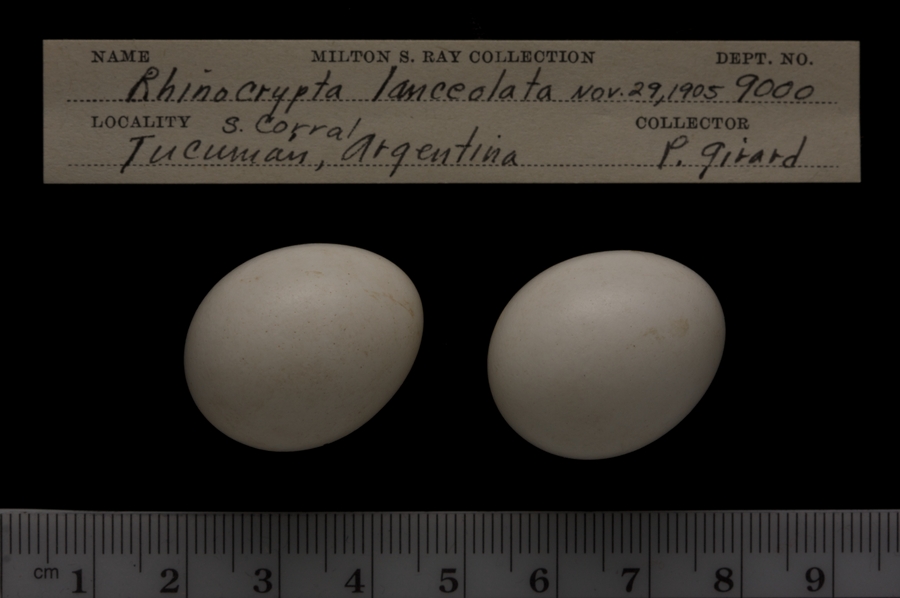 NAME MILTON S. RAY COLLECTION DEPT. NO.
Rhinocrypta lanceolata Nov. 29, 1905 9000
LOCALITY S. Corral COLLECTOR
Tucuman, Argentina P. Girard
cm 1 2 3 4 5 6 7 8 9